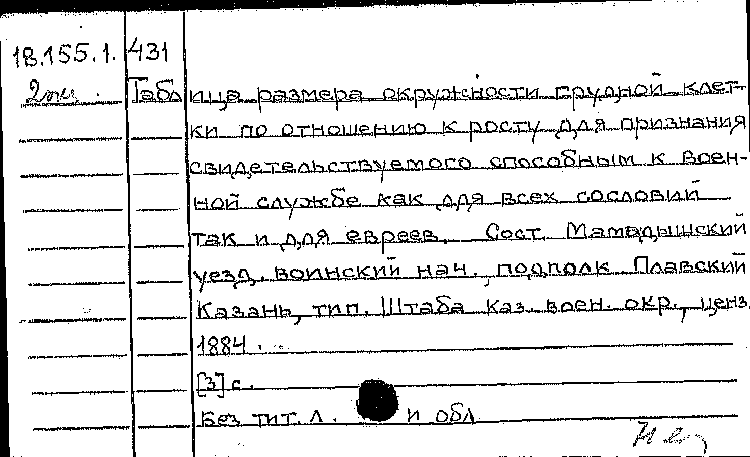 18.155.1. 431
2экз.
Таблица размера окружности грудной клет-
ки по отношению к росту для признания
свидетельствуемого способным к воен-
ной службе как для всех сословий
так и для евреев. Сост. Мамадышский
уезд. воинский нач., подполк. Плавский
Казань, тип. Штаба Каз. воен. окр., ценз.
1884.
[3] с.
Без тит. л. и обл